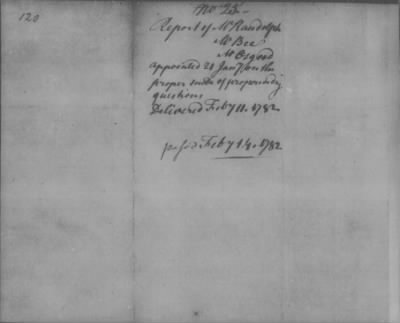 120
No 25
Report of Mr Randolph
Mr Bee
Mr Osgood
appointed 28 Jany on the
proper mode of propounding
questions
Delivered Feby 11. 1782
passd Feby 14. 1782